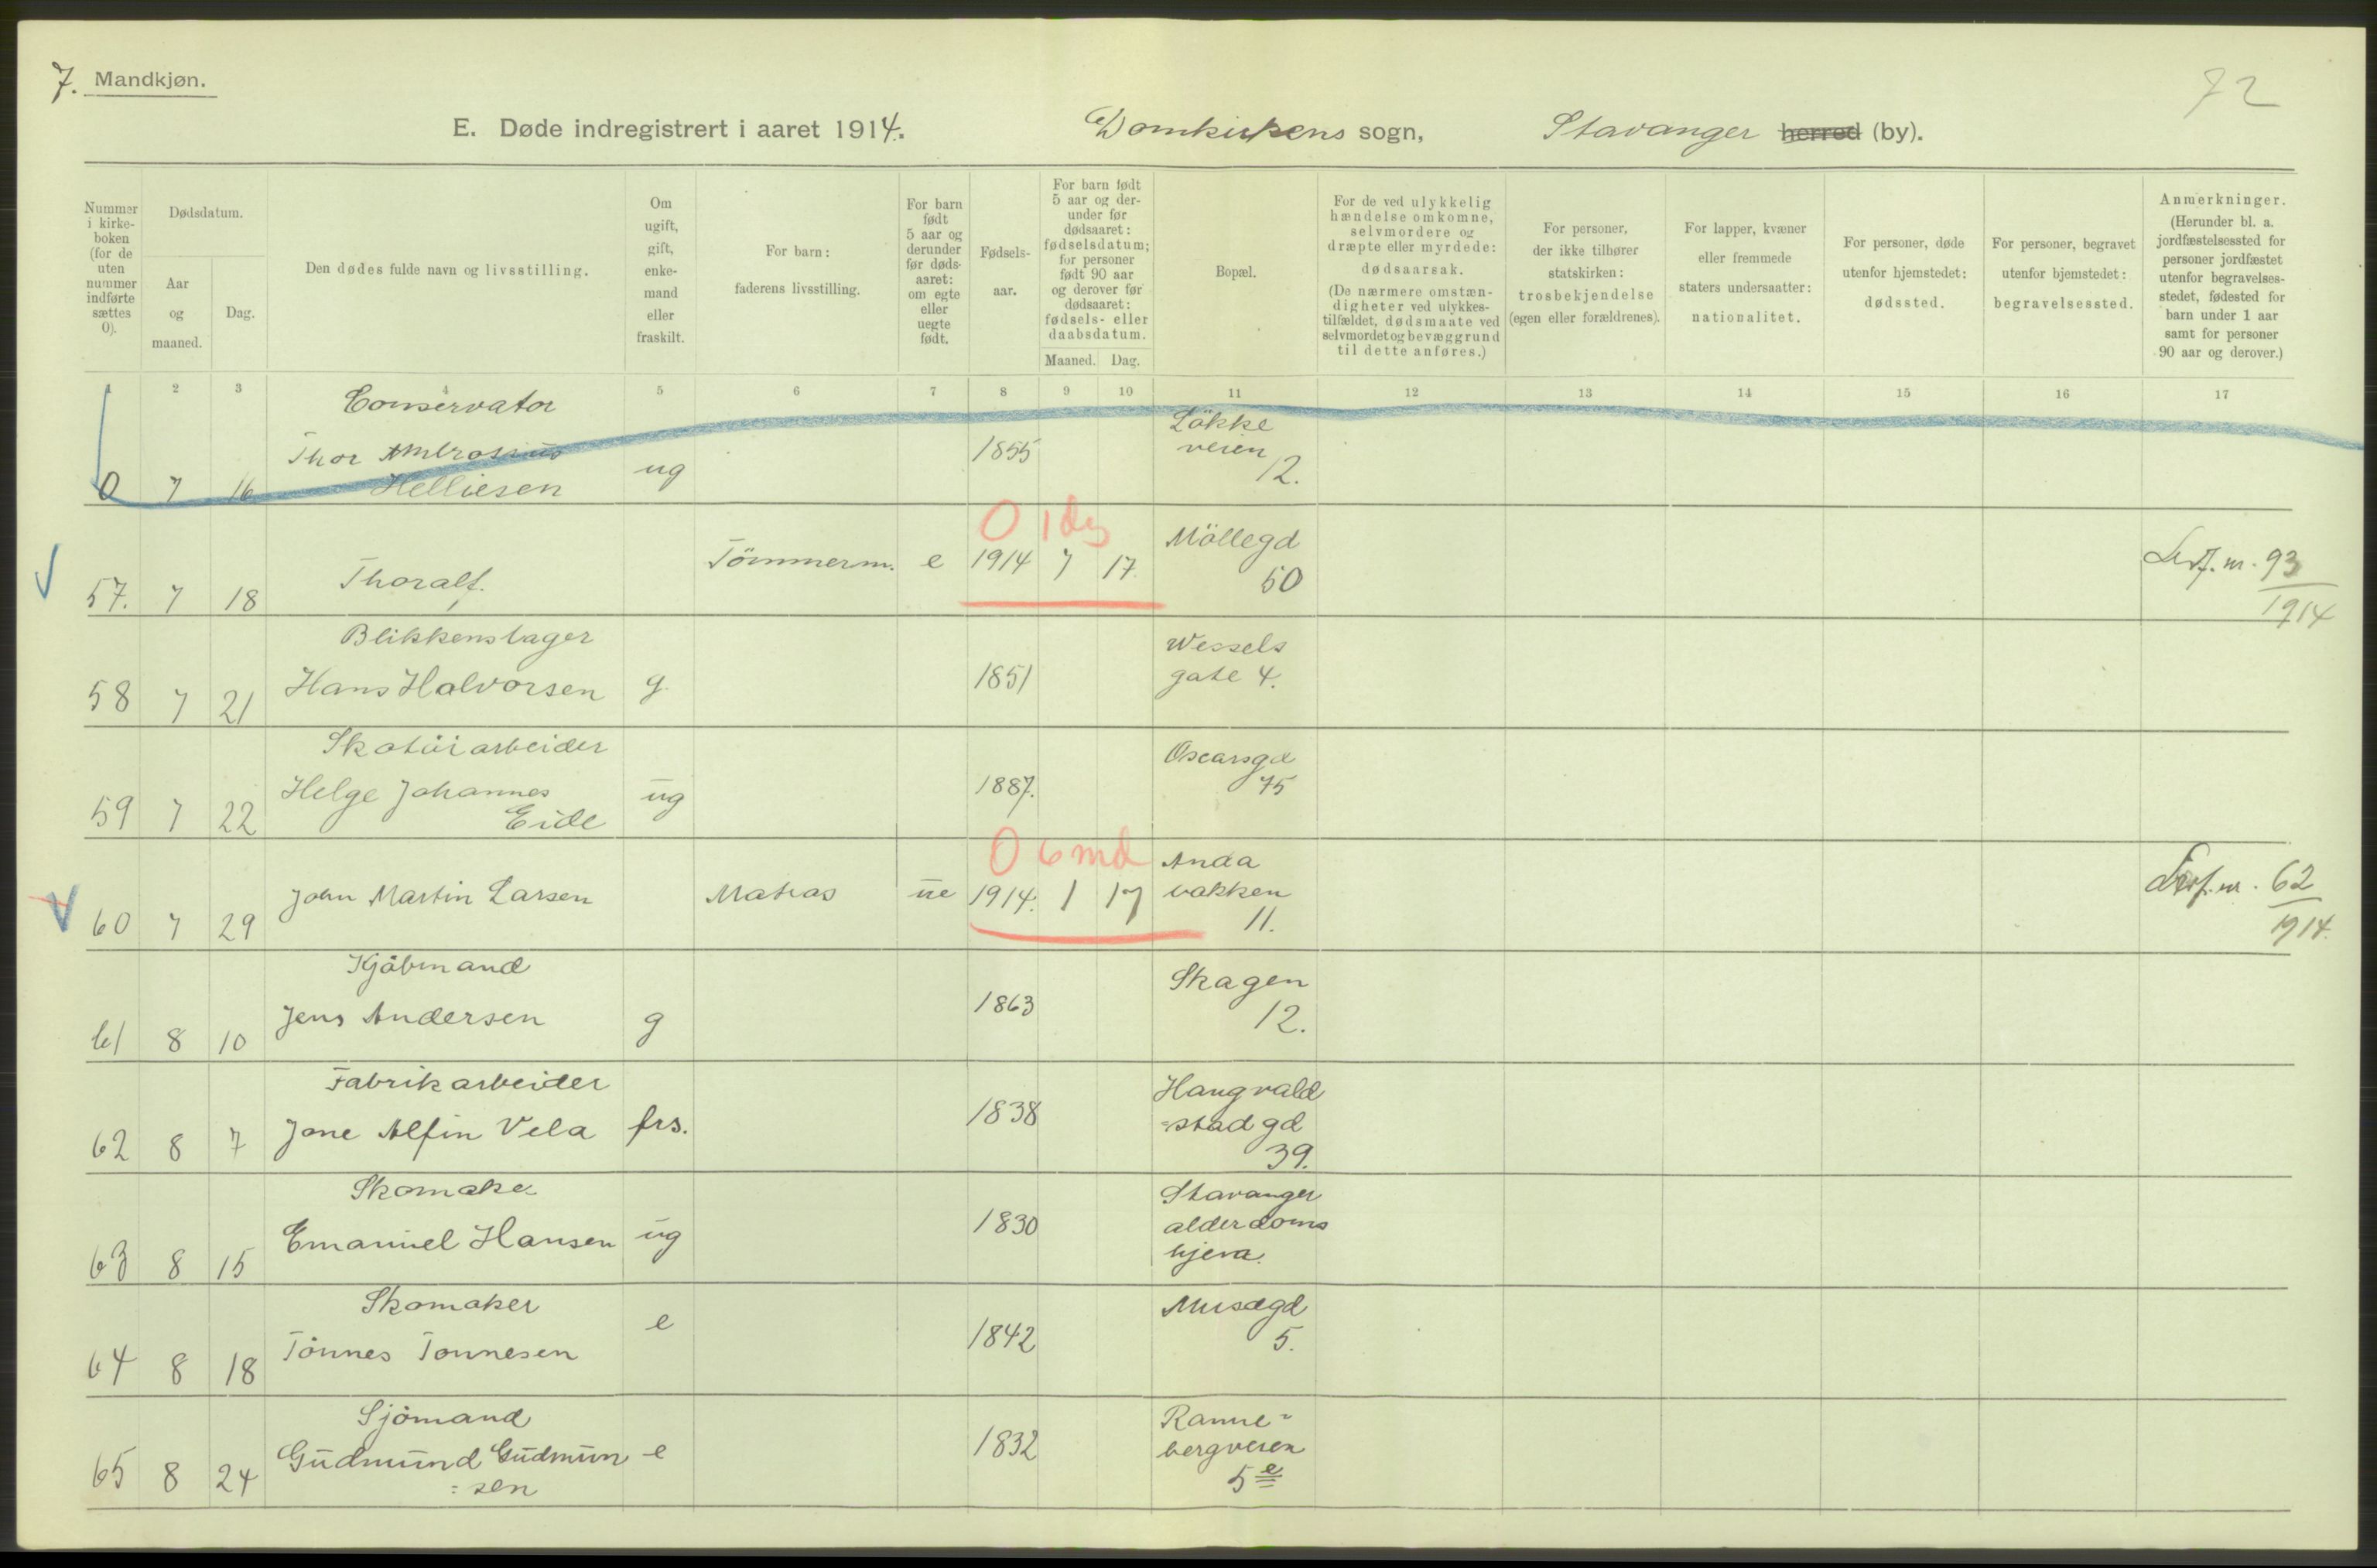 7. Mandkjøn.
72
E. Døde indregistrert i aaret 1914. Domkirkens sogn, Stavanger herred (by).
Nummer i kirkeboken (for de uten nummer indførte sættes 0).
Dødsdatum.
Aar og maaned.
Dag.
Den dødes fulde navn og livsstilling.
Om ugift, gift, enkemand eller fraskilt.
For barn: faderens livsstilling.
For barn født 5 aar og derunder før dødsaaret: om egte eller uegte født.
Fødselsaar.
For barn født 5 aar og derunder før dødsaaret: fødselsdatum; for personer født 90 aar og derover før dødsaaret: fødsels- eller daabsdatum.
Maaned. Dag.
Bopæl.
For de ved ulykkelig hændelse omkomne, selvmordere og dræpte eller myrdede: dødsaarsak. (De nærmere omstændigheter ved ulykkestilfældet, dødsmaate ved selvmordet og bevæggrund til dette anføres.)
For personer, der ikke tilhører statskirken: trosbekjendelse (egen eller forældrenes).
For lapper, kvæner eller fremmede staters undersaatter: nationalitet.
For personer, døde utenfor hjemstedet: dødssted.
For personer, begravet utenfor hjemstedet: begravelsessted.
Anmerkninger. (Herunder bl. a. jordfæstelsessted for personer jordfæstet utenfor begravelsesstedet, fødested for barn under 1 aar samt for personer 90 aar og derover.)
1 2 3 4 5 6 7 8 9 10 11 12 13 14 15 16 17
Conservator
0 7 16 Thor Ambrosius Helliesen ug 1855 Løkke veien 12.
0 1 dg
57. 7 18 Thoralf. Tömmerm. e 1914 7 17. Möllegd 50 nr. 93 1914
Blikkenslager
58 7 21 Hans Halvorsen g. 1851 Wessels gate 4.
Skotöiarbeider
59 7 22 Helge Johannes Eide ug 1887. Oscarsgd 75
0 6 md
60 7 29 John Martin Larsen Matros ue 1914. 1 17 Anda bakken 11. nr. 62 1914.
Kjøbmand
61 8 10 Jens Andersen g 1863 Skagen 12.
Fabrikarbeider
62 8 7 Jone Alfin Vela frs. 1838 Haugvald =stad gd 39.
Skomaker
63 8 15 Emanuel Hansen ug 1830 Stavanger alderdoms hjem.
Skomaker
64 8 18 Tönnes Tonnesen e 1842 Musægd 5.
Sjömand
65 8 24 Gudmund Gudmun =sen e 1832 Ranne= bergveien 5e